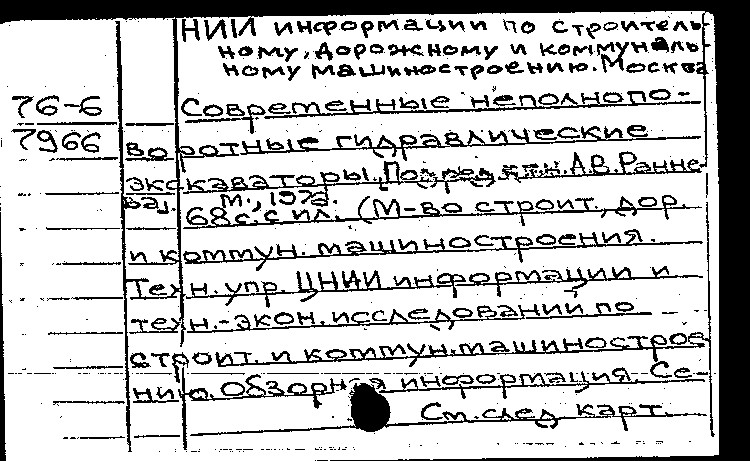 НИИ информации по строитель-
ному, дорожному и коммуналь-
ному машиностроению. Москва
76-6
Современные неполнопо-
7966
воротные гидравлические
экскаваторы. Под ред. к.т.н. А.В. Ранне-
ва. М., 197
68 с. с ил. (М-во строит., дор.
и коммун. машиностроения.
Техн. упр. ЦНИИ информации и
техн.-экон. исследований по
строит. и коммун. машинострое
нию. Обзорная информация. Се-
См. след карт.